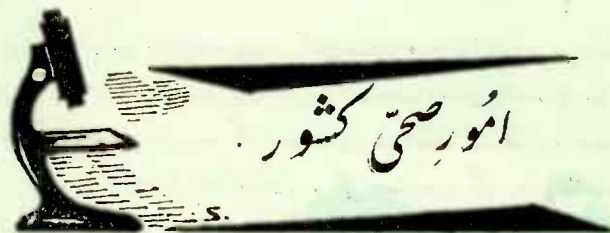 امُورِ صحّیِ کشور
S.